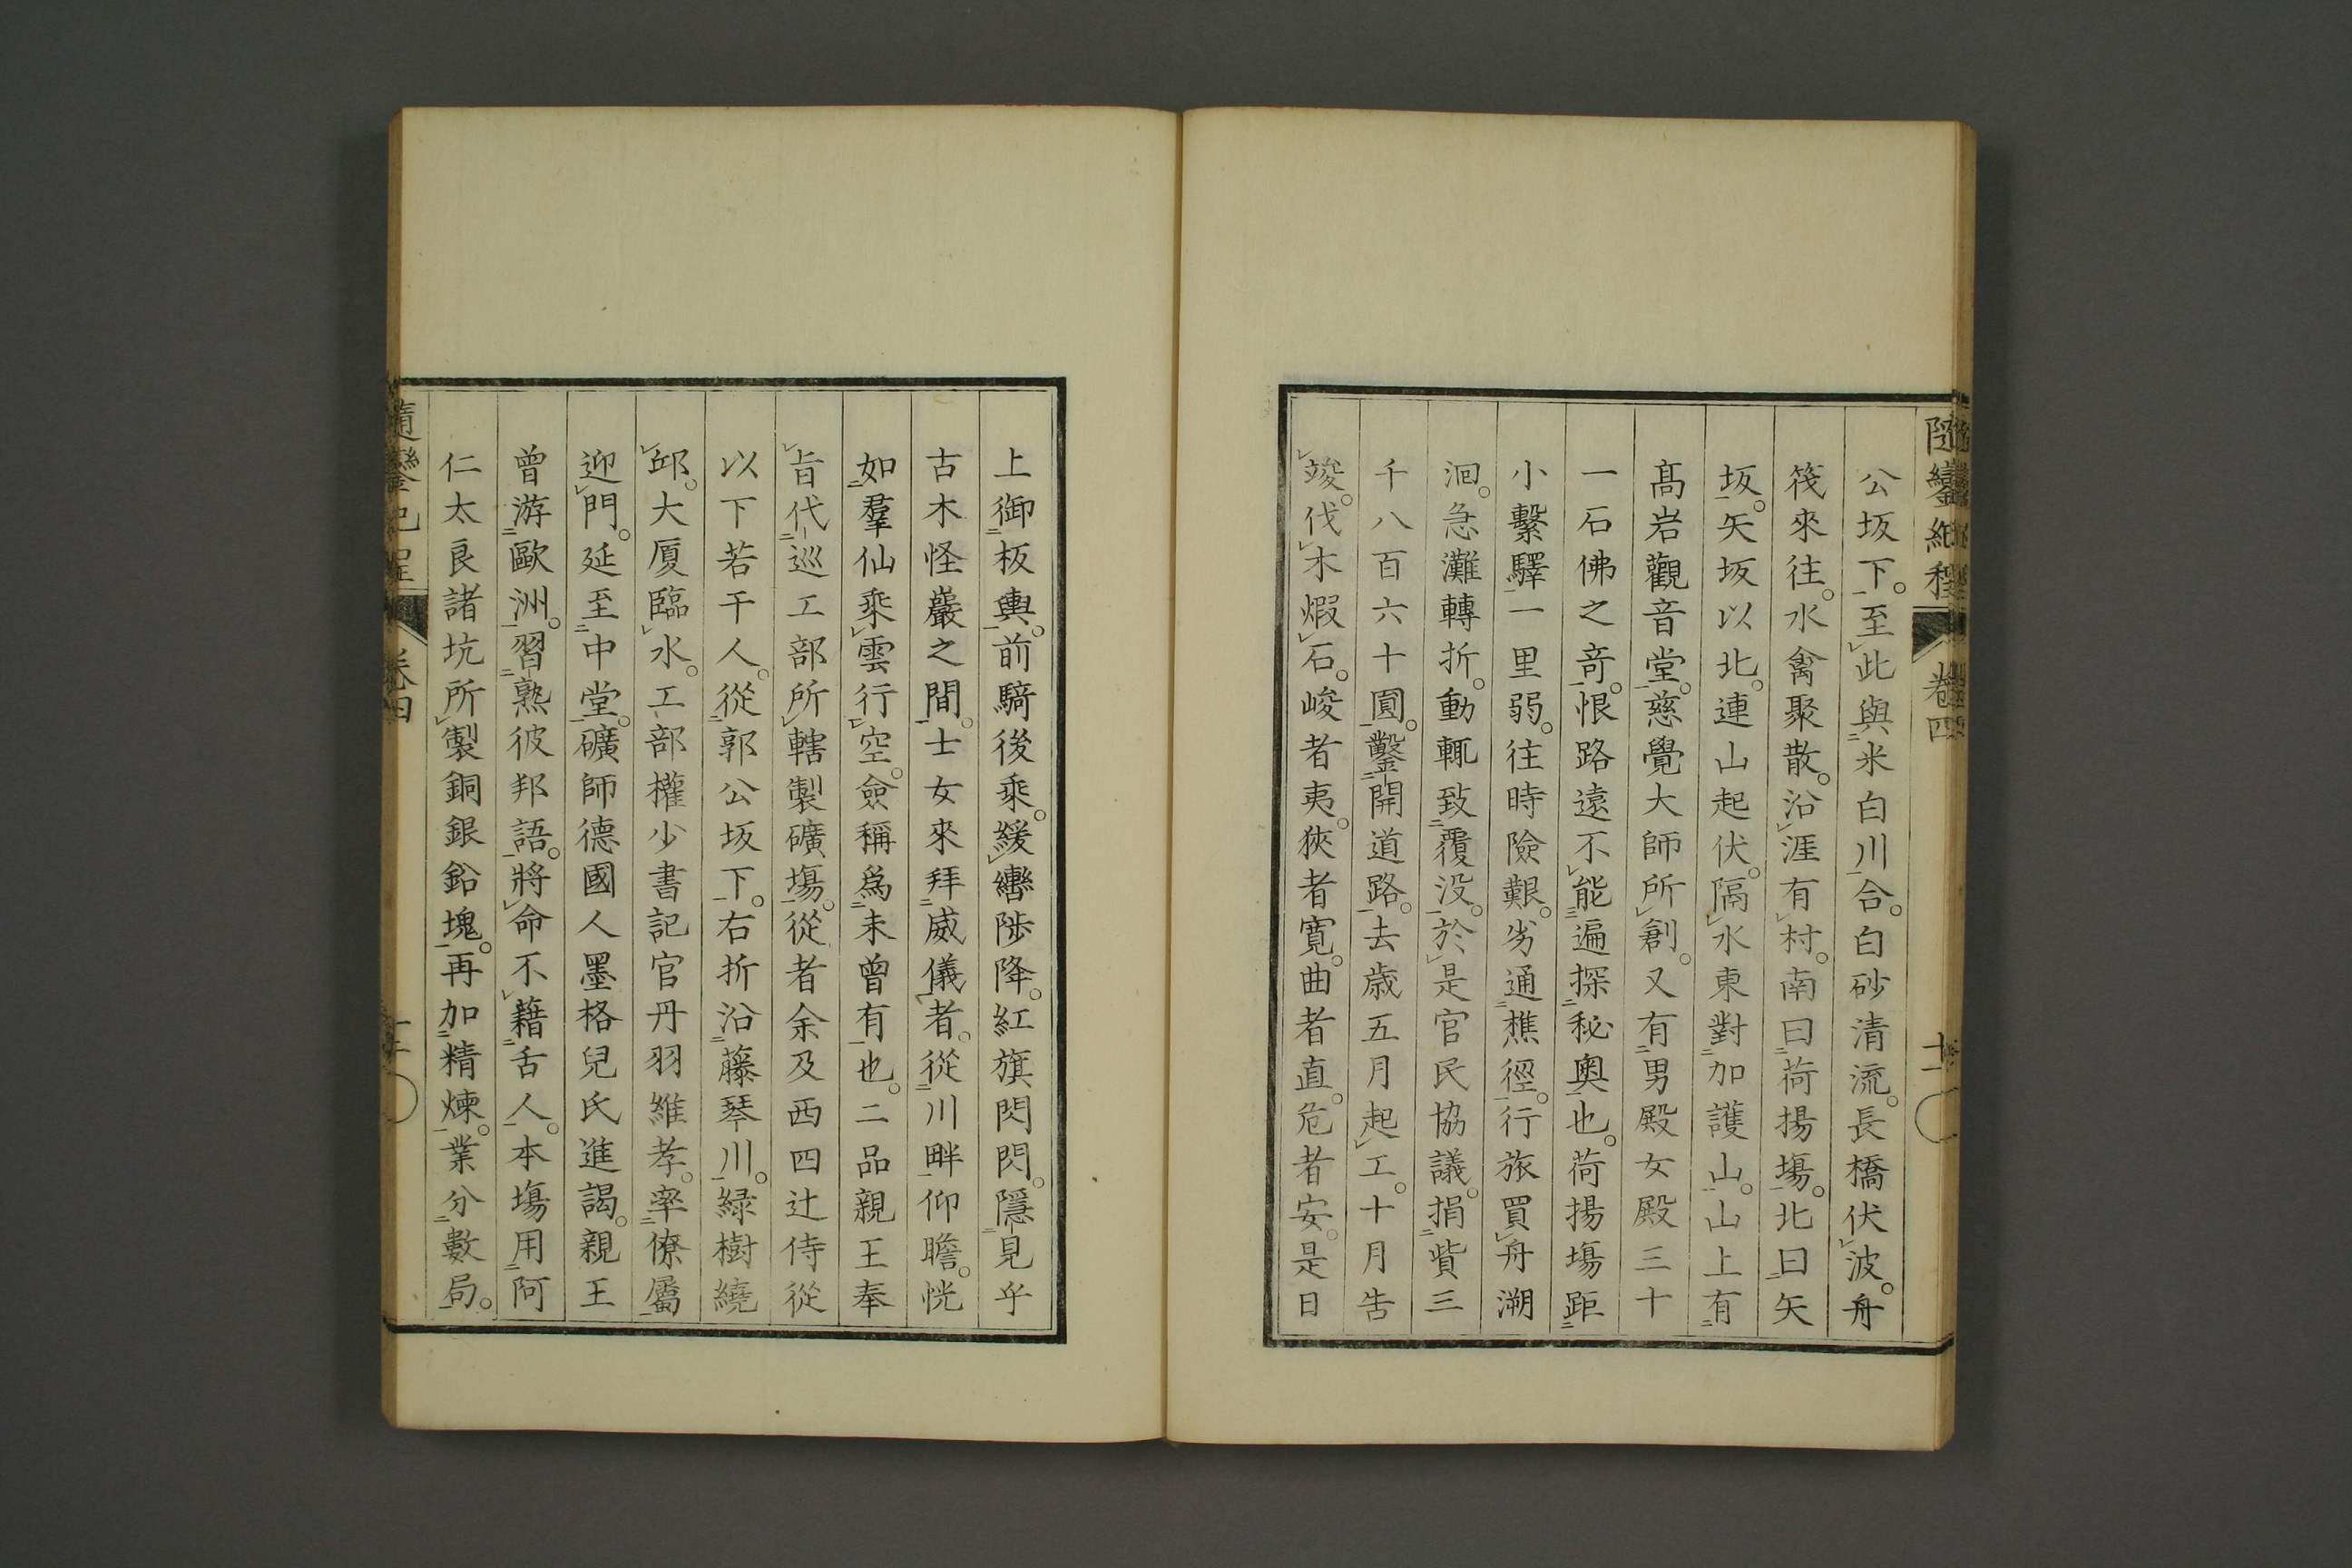 隨鑾紀程 卷四 十一
公坂下。至此與米白川合。白砂清流。長橋伏波。舟
筏來往。水禽聚散。沿涯有村。南曰荷揚場。北曰矢
坂。矢坂以北。連山起伏。隔水東對加護山。山上有
髙岩觀音堂。慈覺大師所創。又有男殿女殿三十
一石佛之竒。恨路遠不能遍探秘奧也。荷揚場距
小繫驛一里弱。往時險艱。劣通樵徑。行旅買舟溯
洄。急灘轉折。動輒致覆没。於是官民協議。捐貲三
千八百六十圓。鑿開道路。去歲五月起工。十月告
竣。伐木煆石。峻者夷。狹者寬。曲者直。危者安。是日
上御板輿。前騎後乘。緩轡陟降。紅旗閃閃。隱見乎
古木怪巖之間。士女來拜威儀者。從川畔仰瞻。恍
如羣仙乘雲行空。僉稱爲未曾有也。二品親王奉
旨代巡工部所轄製礦場。從者余及西四辻侍從
以下若干人。從郭公坂下。右折沿藤琴川。緑樹繞
邱。大厦臨水。工部權少書記官丹羽維孝。率僚屬
迎門。延至中堂。礦師德國人墨格兒氏進謁。親王
曾游歐洲。習熟彼邦語。將命不藉舌人。本場用阿
仁太良諸坑所製銅銀鉛塊。再加精煉。業分數局。
隨鑾紀程 卷四